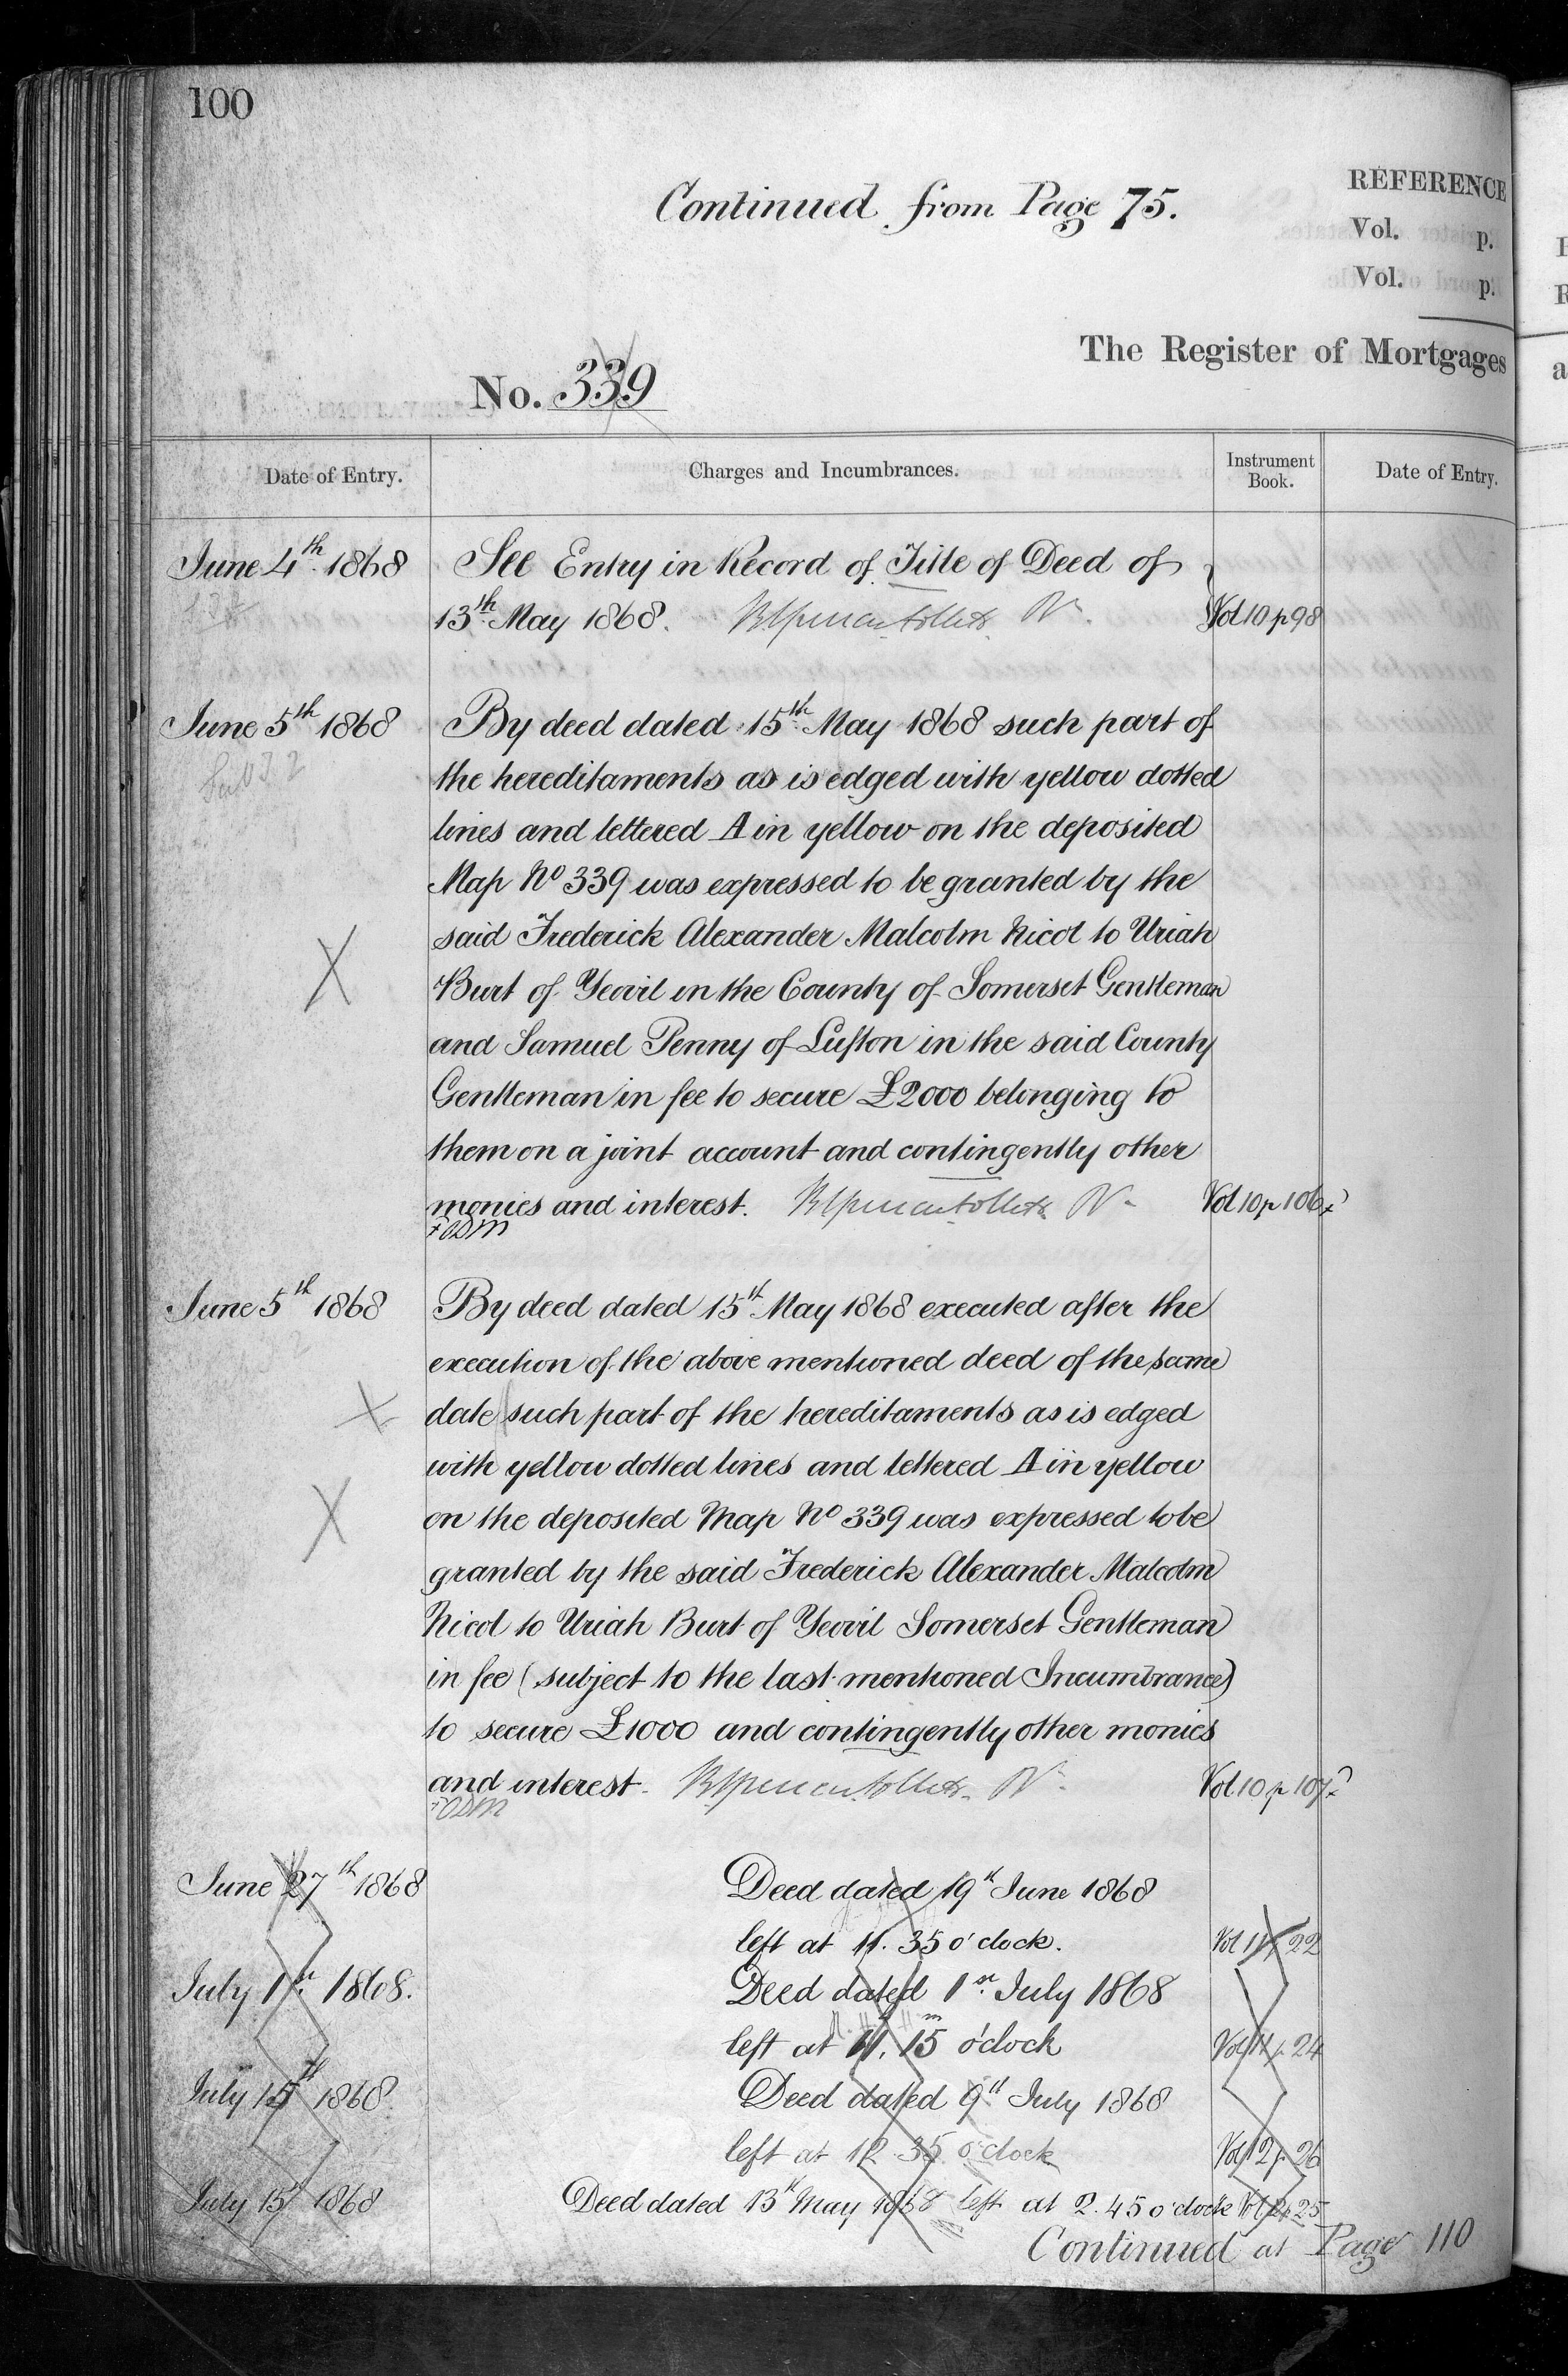 100
Continued from Page 75.
REFERENCE
Vol. p.
Vol. p.
The Register of Mortgages
No. 339
Date of Entry. Charges and Incumbrances. Instrument Book. Date of Entry.
June 4th 1868 See Entry in Record of Title of Deed of
13th May 1868. Vol 10 p 98
June 5th 1868 By deed dated 15th May 1868 such part of
the hereditaments as is edged with yellow dotted
lines and lettered A in yellow on the deposited
Map No 339 was expressed to be granted by the
said Frederick Alexander Malcolm Nicol to Uriah
Burt of Yeovil in the County of Somerset Gentleman
and Samuel Penny of Lufton in the said County
Gentleman in fee to secure £2000 belonging to
them on a joint account and contingently other
monies and interest. Vol 10 p 106
June 5th 1868 By deed dated 15th May 1868 executed after the
execution of the above mentioned deed of the same
date such part of the hereditaments as is edged
with yellow dotted lines and lettered A in yellow
on the deposited Map No 339 was expressed to be
granted by the said Frederick Alexander Malcolm
Nicol to Uriah Burt of Yeovil Somerset Gentleman
in fee (subject to the last mentioned Incumbrance)
to secure £1000 and contingently other monies
and interest. Vol 10 p 107
June 27th 1868 Deed dated 19th June 1868
left at 11.35 o'clock. Vol 11 p 22
July 1st 1868. Deed dated 1st July 1868
left at 11.15 o'clock Vol 11 p 24
July 15th 1868 Deed dated 9th July 1868
left at 12.35 o'clock Vol 12 p 26
July 15th 1868 Deed dated 13th May 1868 left at 2.45 o'clock Vol 12 p 25
Continued at Page 110